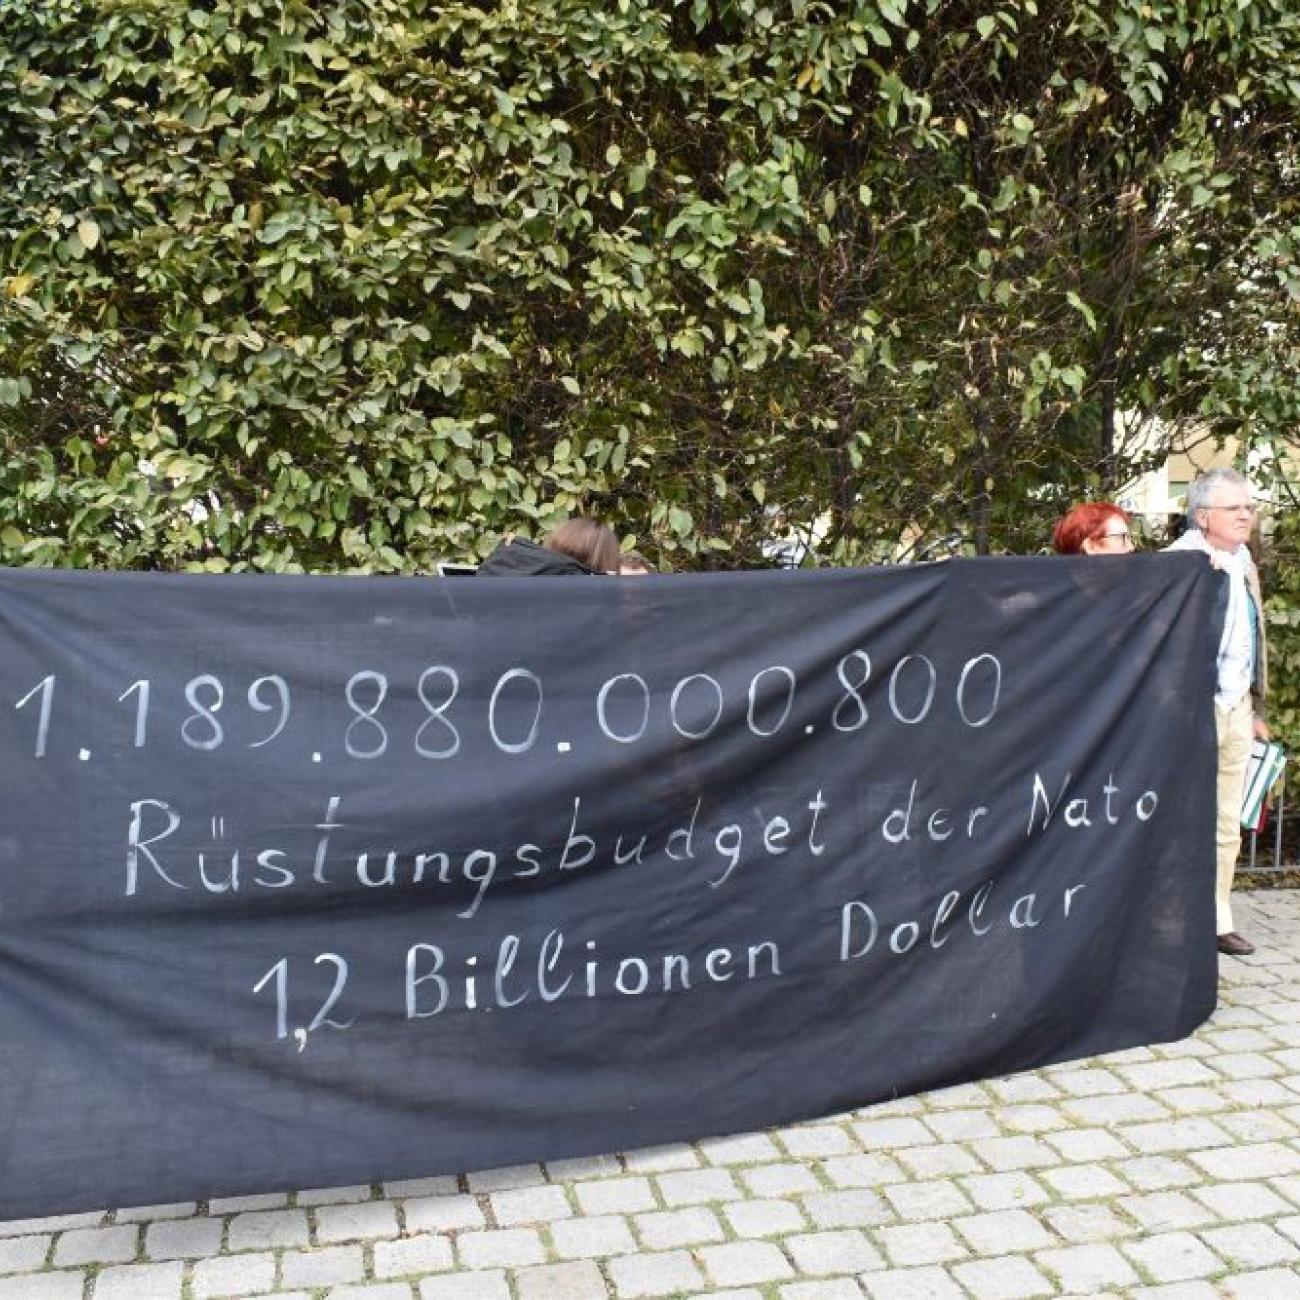 1.189.880.000.800
Rüstungsbudget der Nato
1,2 Billionen Dollar